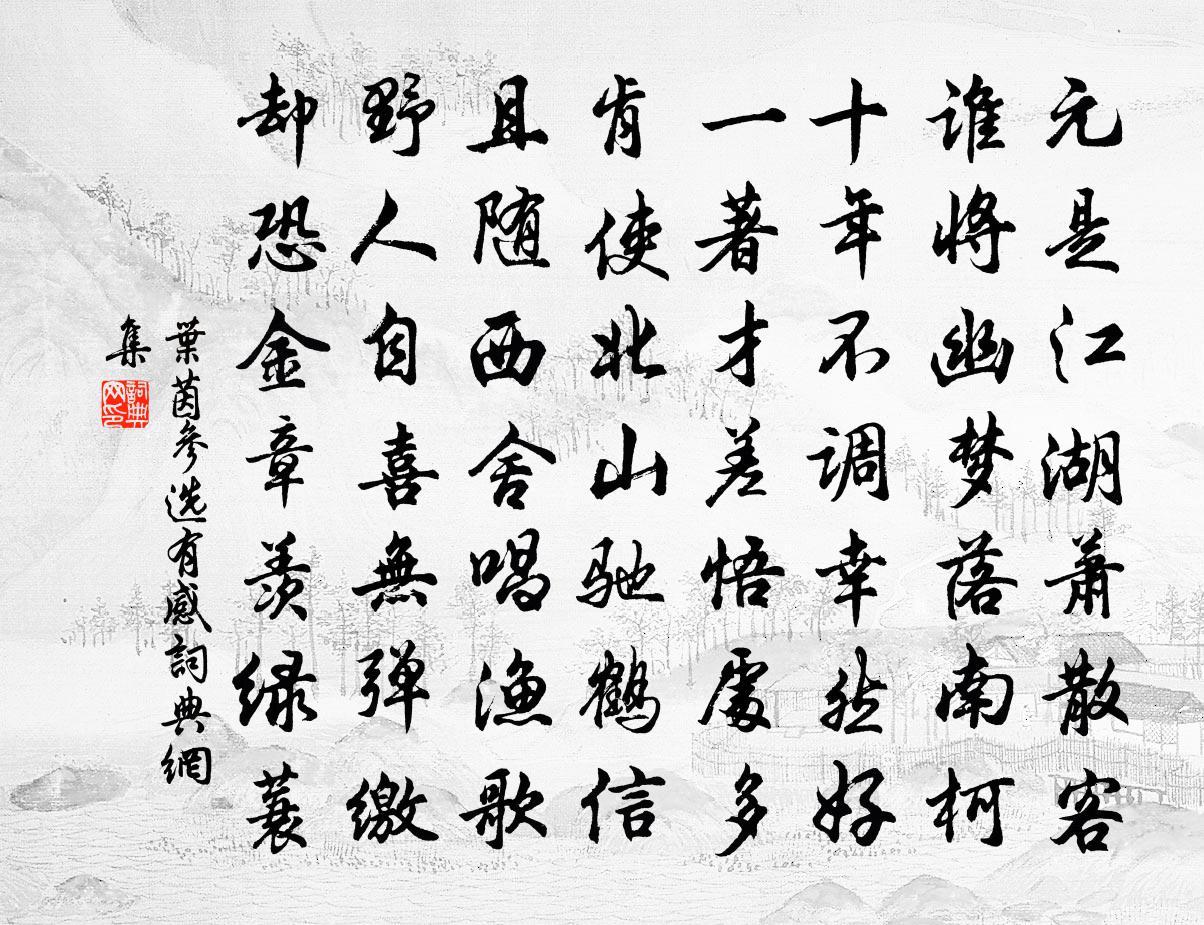 元是江湖萧散客
谁将幽梦落南柯
十年不调幸然好
一著才差悟處多
肯使北山驰鹤信
且随西舍唱漁歌
野人自喜無弹缴
却恐金章羡绿蓑
葉茵參选有感詞典網
集
詞典网印